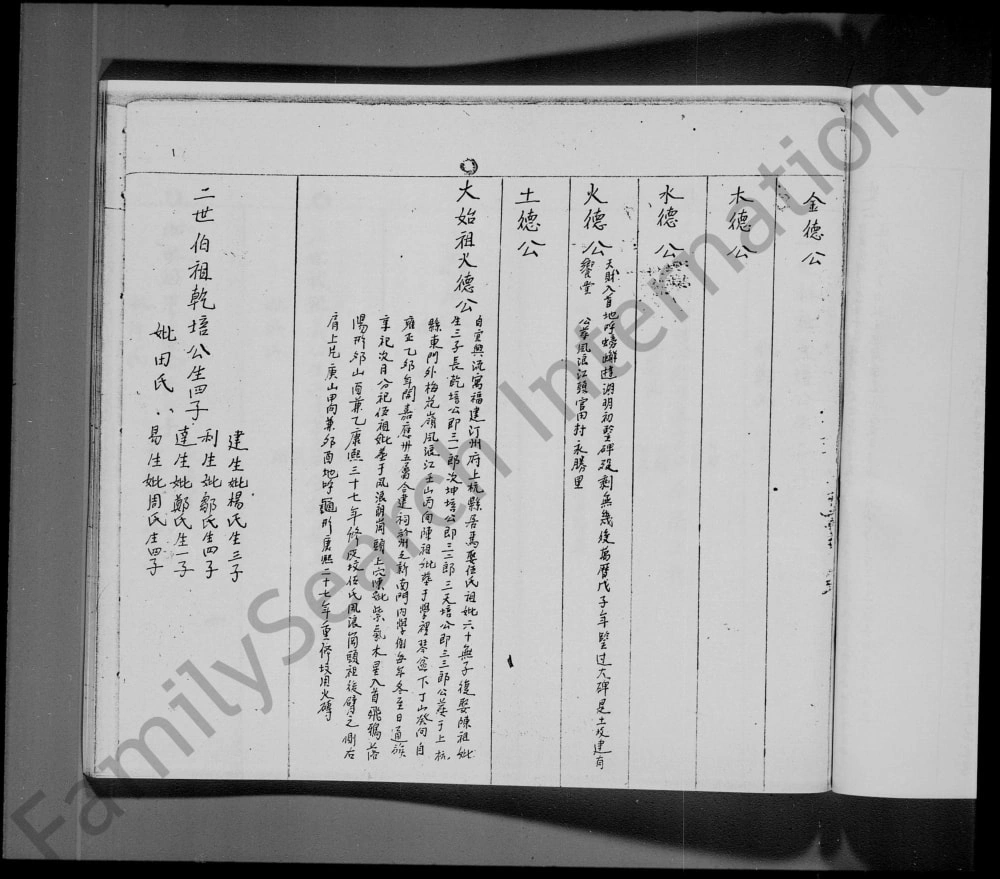 金德公
木德公
水德公
火德公
天財入首地呼螃蟹遊湖明初豎碑毀剩無幾後萬曆戊子年豎过大碑是土坟建有
饗堂 公葬風浪江頭官田封永勝里
土德公
大始祖火德公
自寧興流寓福建汀州府上杭縣居焉娶伍氏祖妣六十無子復娶陳祖妣
生三子長乾培公即三一郎次坤培公即三二郎三天培公即三三郎公葬于上杭
縣東門外梅花嶺風浪江壬山丙向陳祖妣葬于學裡琴岔下丁山癸向自
雍正乙卯年閤嘉應州五屬合建祠於州城新南門內學側每年冬至日通族
享祀次日分祀伍祖妣墓于風浪崗頭上穴陳妣紫氣木星入首飛鵝落
陽形卯山酉兼乙康熙三十七年修改坟伍氏風浪崗頭祖後臂之側右
肩上片庚山甲向兼卯酉地呼 形康熙二十七年重修坟用火磚
二世伯祖乾培公生四子
妣田氏
建生妣楊氏生三子
利生妣鄒氏生四子
達生妣鄭氏生一子
易生妣周氏生四子
FamilySearch International